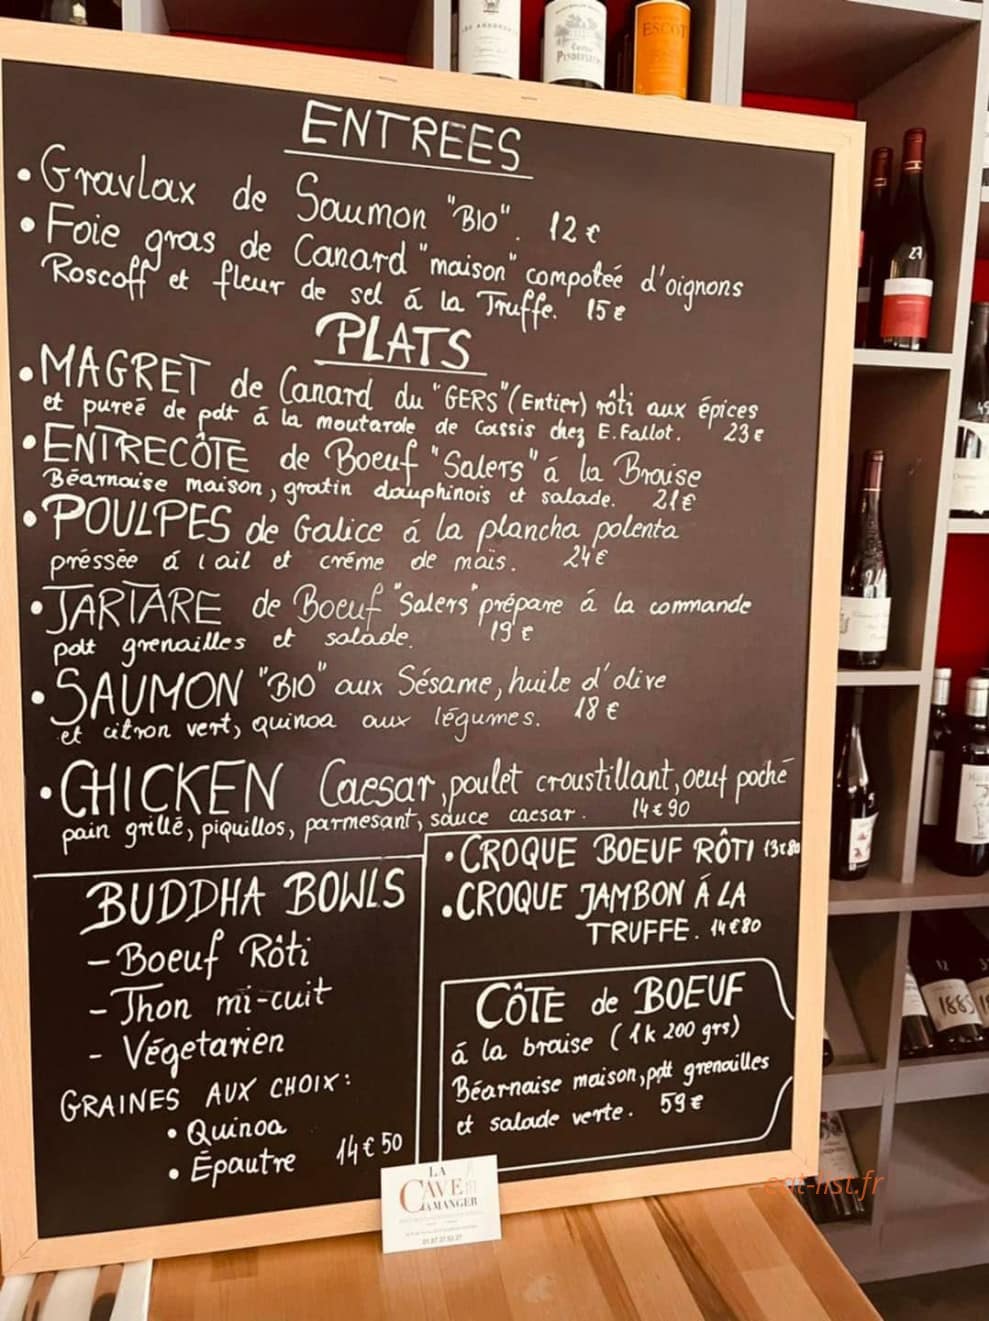 ESCOT
ENTREES
• Gravlax de Saumon "BIO". 12€
• Foie gras de Canard "maison" compoteé d'oignons
Roscoff et fleur de sel á la Truffe. 15€
PLATS
• MAGRET de Canard du "GERS" (Entier) rôti aux épices
et pureé de pdt á la moutarde de Cassis chez E.Fallot. 23€
• ENTRECÔTE de Boeuf "Salers" á la Braise
Béarnaise maison, gratin dauphinois et salade. 21€
• POULPES de Galice á la plancha polenta
préssée á l ail et créme de maïs. 24€
• TARTARE de Boeuf "Salers" prépare á la commande
pdt grenailles et salade. 19€
• SAUMON "BIO" aux Sésame, huile d'olive
et citron vert, quinoa aux légumes. 18€
• CHICKEN Caesar, poulet croustillant, oeuf poché
pain grillé, piquillos, parmesant, sauce caesar. 14€90
• CROQUE BOEUF RÔTI 13€80
• CROQUE JAMBON Á LA
TRUFFE. 14€80
BUDDHA BOWLS
- Boeuf Rôti
- Thon mi-cuit
- Végetarien
GRAINES AUX CHOIX:
• Quinoa
• Épautre 14€50
CÔTE de BOEUF
á la braise (1k 200 grs)
Béarnaise maison, pdt grenailles
et salade verte. 59€
LA
CAVE
A MANGER
eat-list.fr
27
1885